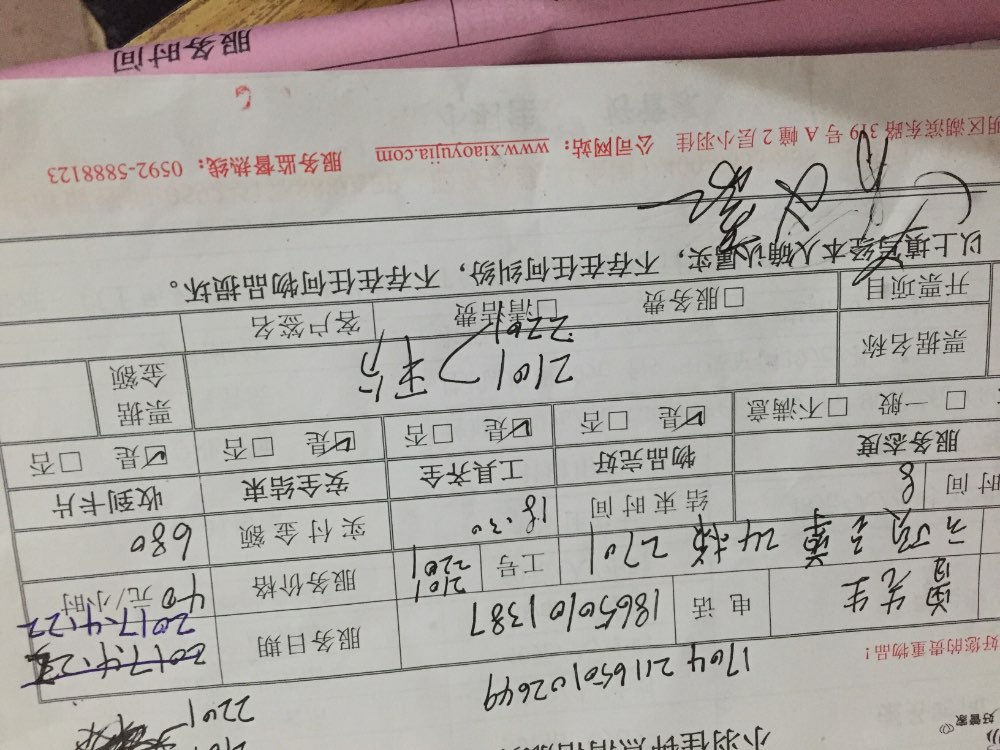 小羽佳钟点清洁服
好管家
2201
1704211650102649
好您的贵重物品！
先生 电话 18650101387 服务日期 2017.4.22
2017.4.22
24栋2701 工号 2101 2201 服务价格 40元/小时
时间 8 结束时间 18:30 实付金额 680
服务态度 物品完好 工具齐全 安全结束 收到卡片
□一般 □不满意 ☑是 □否 ☑是 □否 ☑是 □否 ☑是 □否
票据名称 2101 2201 票据金额
开票项目 □服务费 □清洁费 客户签名
以上填写经本人确认属实，不存在任何纠纷，不存在任何物品损坏。
明区湖滨东路319号A幢2层小羽佳 公司网站：www.xiaoyujia.com 服务监督热线：0592-5888123
服务时间